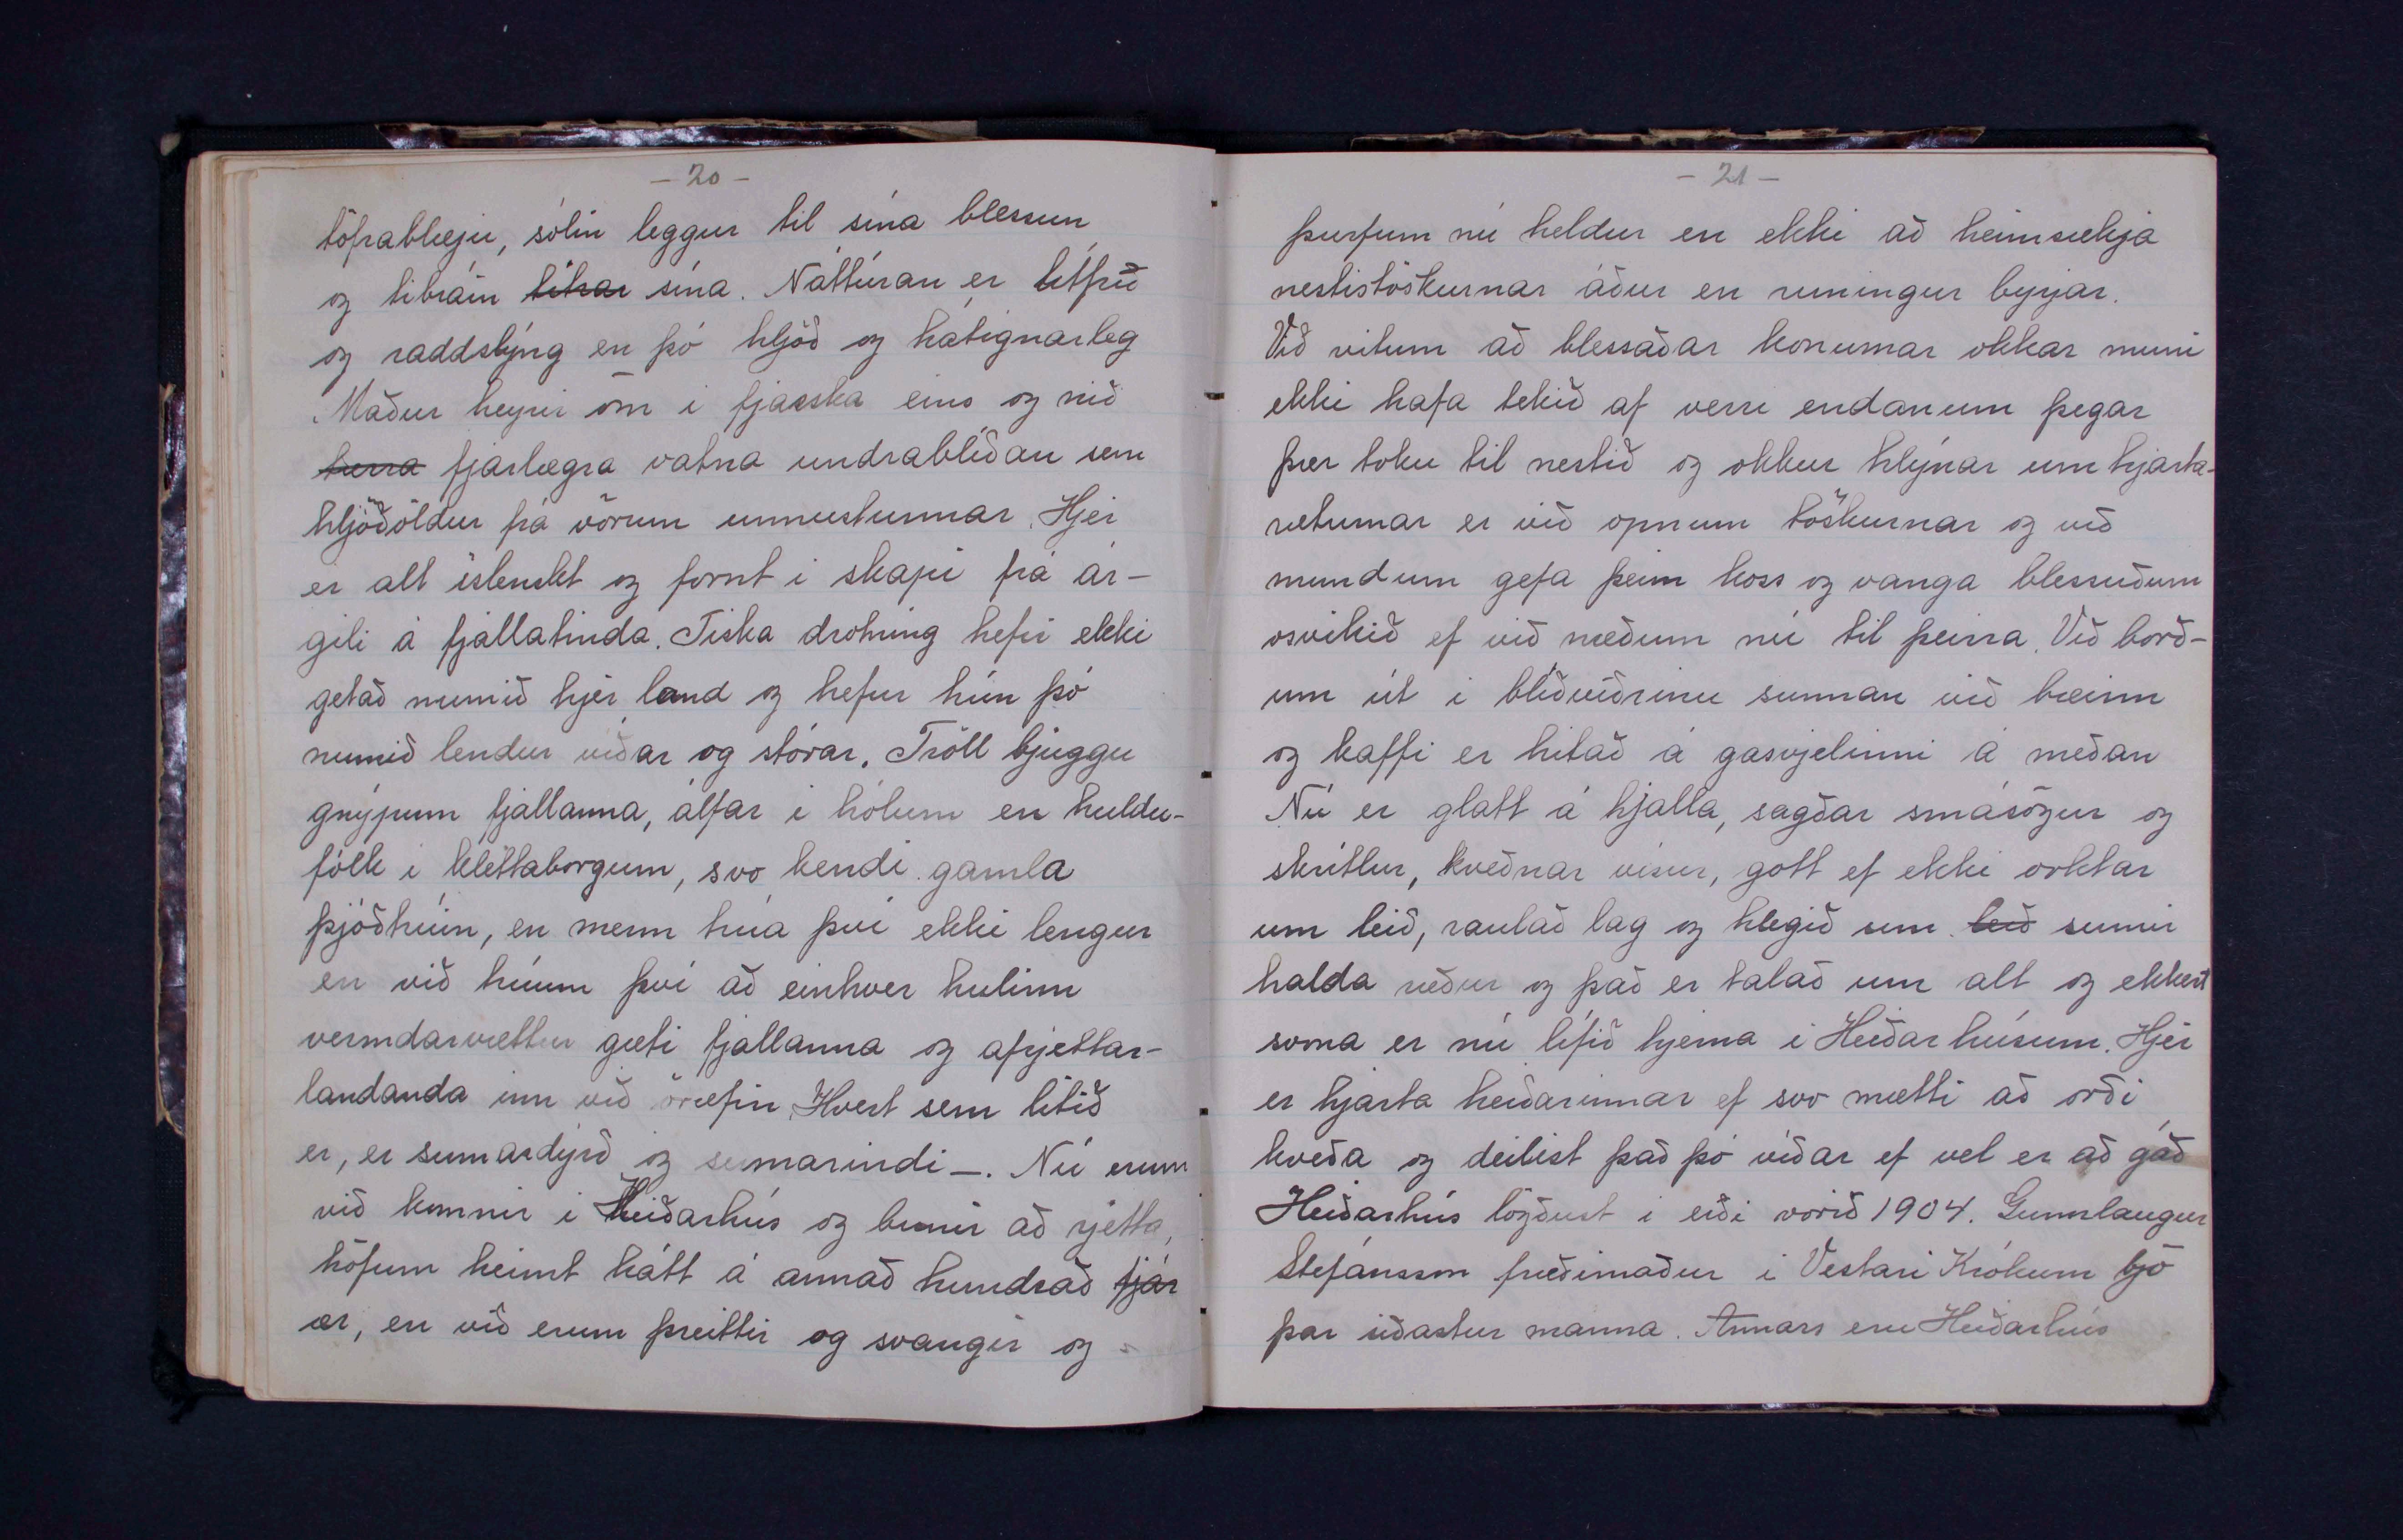 - 20 -
töfrablæju, sólin leggur til sína blessun
og tibráin titrar sína. Náttúran er litfríð
og raddslýng en þó hljóð og hátignarleg
Maður heyrir óm i fjarska eins og nið
fjarlægra vatna undrablíðan sem
hljóðöldur frá vörum unnustunnar. Hjer
er alt íslenskt og fornt i skapi frá ár-
gili á fjallatinda. Tiska drotning hefir ekki
getað numið hjér land og hefur hún þó
numið lendur viðar og stórar. Tröll bjuggu
gnýpum fjallanna, álfar i hólum en huldu-
fólk i klettaborgum, svo kendi gamla
þjóðtrúin, en menn trúa því ekki lengur
en við trúum þvi að einhver hulinn
verndarvættur gæti fjallanna og afrjettar-
landanda inn við öræfin. Hvert sem litið
er, er sumardýrð og sumarindi -. Nú erum
við komnir i Heiðarhús og bunir að rjetta,
höfum heimt hátt á annað hundrað fjár
ær, en við erum þreittir og svangir og
- 21 -
þurfum nú heldur en ekki að heimsækja
nestistöskurnar áður en runingur byrjar.
Við vitum að blessaðar konurnar okkar muni
ekki hafa tekið af verri endanum þegar
þær toku til nestið og okkur hlýnar um hjarta-
ræturnar er við opnum töskurnar og við
mundum gefa þeim koss og vanga blessuðum
osvikið ef við næðum nú til þeirra. Við borð-
um út i blíðviðrinu sunnan við bæinn
og kaffi er hitað á gasvjelinni á meðan
Nú er glatt á hjalla, sagðar smásögur og
skritlur, kveðnar visur, gott ef ekki orktar
um leið, raulað lag og hlegið um leið sumir
halda ræður og það er talað um alt og ekkert
svona er nú lífið hjerna i Heiðarhúsum. Hjér
er hjarta heiðarinnar ef svo mætti að orði
kveða og deilist það þó viðar ef vel er að gáð
Heiðarhús lögðust i eiði vorið 1904. Gunnlaugur
Stefánsson fræðimaður i Vestari Krókum bjó
þar siðastur manna. Annars eru Heiðarhús